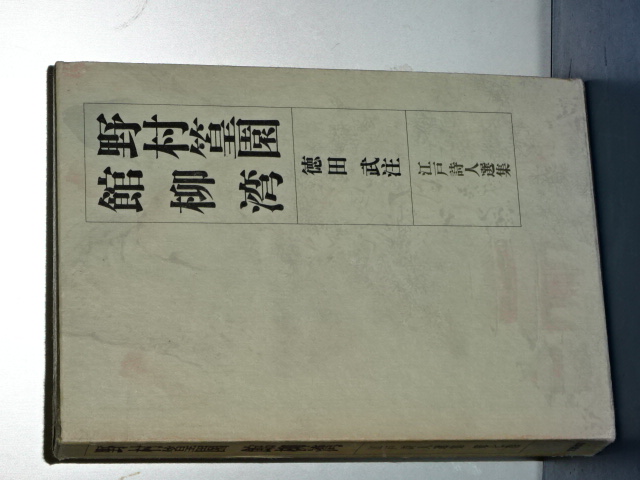 野村篁園
館柳湾
徳田武注
江戸詩人選集